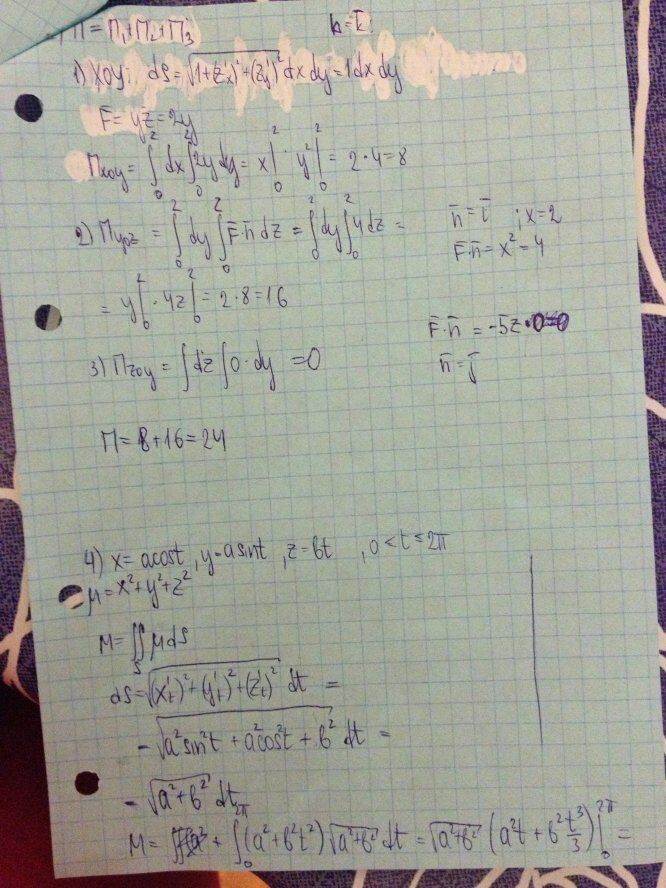 П = П₁+П₂+П₃
n̄ = k̄
1) XOY: dS = √(1+(z'x)²+(z'y)²) dxdy = 1dxdy
F̄ = yz = 2y
Пxoy = ∫₀² dx ∫₀² 2y dy = x|₀² · y²|₀² = 2·4=8
2) Пyoz = ∫₀² dy ∫₀² F̄·n̄ dz = ∫₀² dy ∫₀² 4dz =
n̄ = ī ; x=2
F̄·n̄ = x² = 4
= y|₀² · 4z|₀² = 2·8=16
F̄·n̄ = -5z
3) Пzoy = ∫dz ∫0·dy = 0
n̄ = j̄
П = 8+16=24
4) x = acost, y=asint, z=bt, 0<t≤2π
μ = x²+y²+z²
M = ∬_S μdS
dS = √((x't)²+(y't)²+(z't)²) dt =
= √(a²sin²t + a²cos²t + b²) dt =
= √(a²+b²) dt
M = ∫₀^2π (a²+b²t²) √(a²+b²) dt = √(a²+b²) (a²t + b² t³/3)|₀^2π =